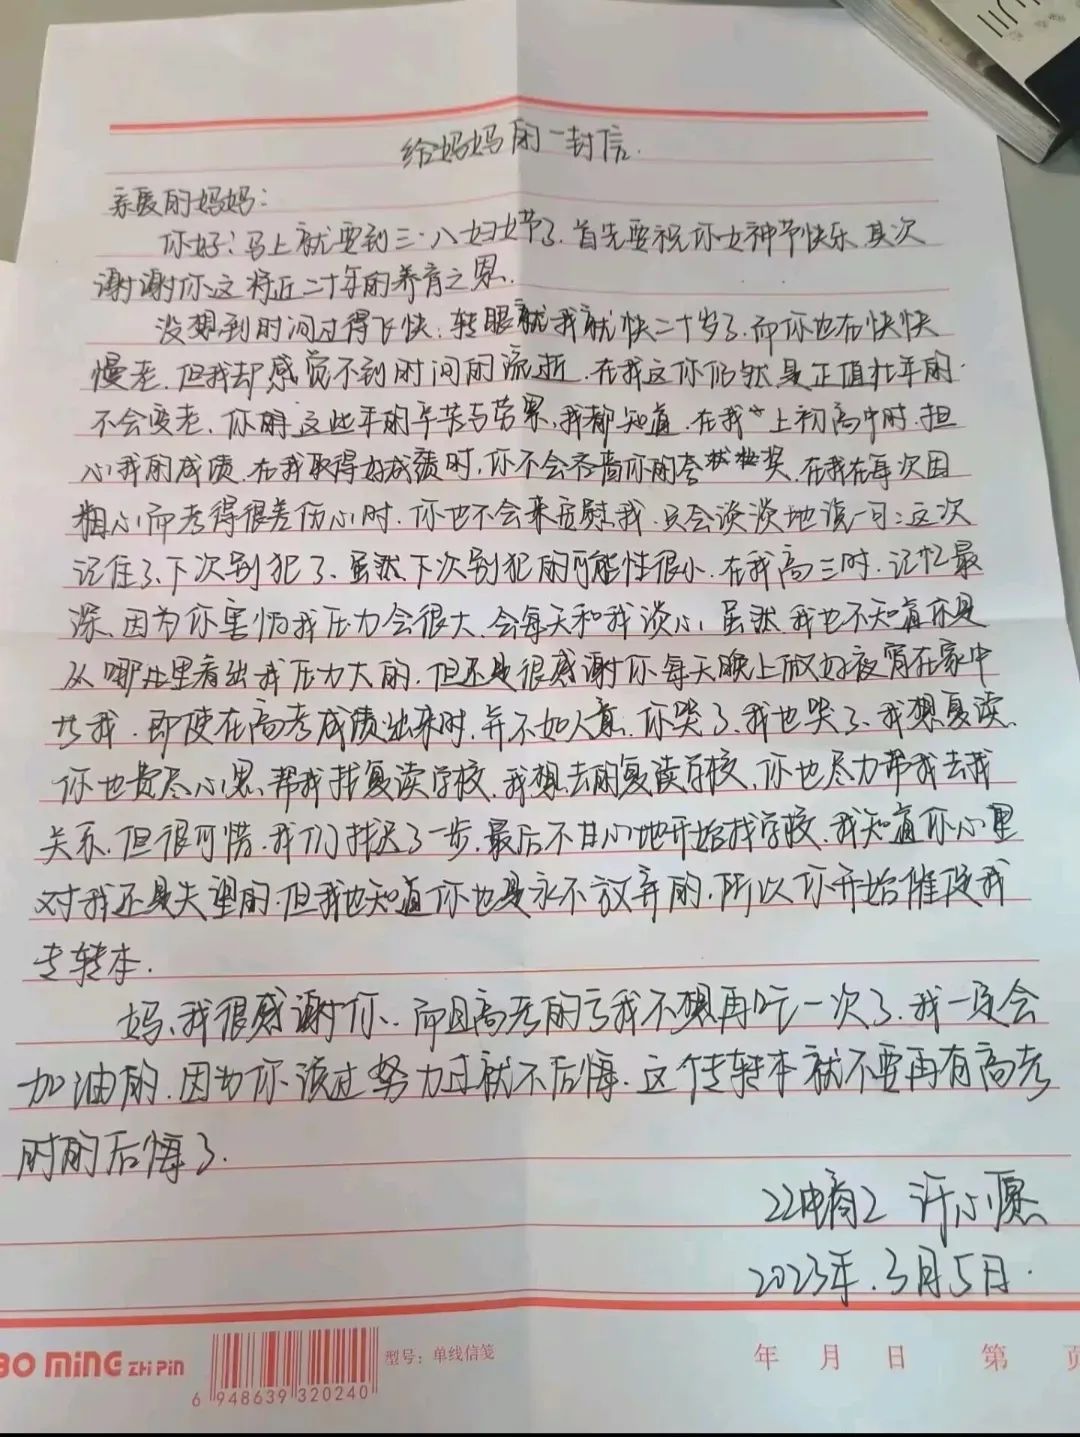 给妈妈的一封信.
亲爱的妈妈:
你好!马上就要到三·八妇女节了.首先要祝你女神节快乐.其次
谢谢你这将近二十年的养育之恩.
没想到时间过得飞快.转眼就我就快二十岁了.而你也在快快
慢老.但我却感觉不到时间的流逝.在我这你仍然是正值壮年的.
不会变老.你的这些年的辛苦与劳累,我都知道.在我上初高中时.担
心我的成绩.在我取得好成绩时,你不会吝啬你的夸奖.在我在每次因
粗心而考得很差伤心时.你也不会来安慰我.只会淡淡地说一句:这次
记住了、下次别犯了.虽然下次别犯的可能性很小.在我高三时.记忆最
深、因为你害怕我压力会很大、会每天和我谈心,虽然我也不知道你是
从哪里看出我压力大的.但还是很感谢你每天晚上做好夜宵在家中
我.即使在高考成绩出来时.并不如人意.你哭了.我也哭了、我想复读.
你也费尽心思、帮我找复读学校、我想去的复读学校、你也尽力帮我去找
关系.但很可惜.我们找迟了一步.最后不甘心地开始找学校.我知道你心里
对我还是失望的.但我也知道你也是永不放弃的.所以你开始催促我
专转本.
妈、我很感谢你.而且高考的亏我不想再吃一次了.我一定会
加油的.因为你说过努力过就不后悔.这个专转本就不要再有高考
时的后悔了.
22电商2 许小愿
2023年.3月5日.
BO MING ZHI PIN
6 948639 320240
型号:单线信笺
年 月 日 第 页